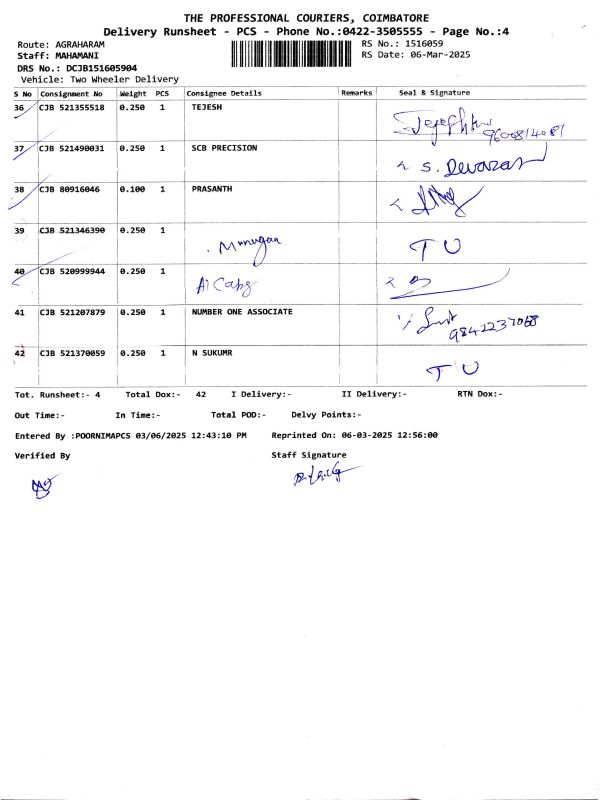 THE PROFESSIONAL COURIERS, COIMBATORE
Delivery Runsheet - PCS - Phone No.:0422-3505555 - Page No.:4
Route: AGRAHARAM RS No.: 1516059
Staff: MAHAMANI RS Date: 06-Mar-2025
DRS No.: DCJB151605904
Vehicle: Two Wheeler Delivery
S No Consignment No Weight PCS Consignee Details Remarks Seal & Signature
36 CJB 521355518 0.250 1 TEJESH
37 CJB 521490031 0.250 1 SCB PRECISION S. Devaraj
38 CJB 80916046 0.100 1 PRASANTH
39 CJB 521346390 0.250 1 Murugan T U
40 CJB 520999944 0.250 1 A1 Cabs
41 CJB 521207879 0.250 1 NUMBER ONE ASSOCIATE
9842237068
42 CJB 521370059 0.250 1 N SUKUMR T U
Tot. Runsheet:- 4 Total Dox:- 42 I Delivery:- II Delivery:- RTN Dox:-
Out Time:- In Time:- Total POD:- Delvy Points:-
Entered By :POORNIMAPCS 03/06/2025 12:43:10 PM Reprinted On: 06-03-2025 12:56:00
Verified By Staff Signature